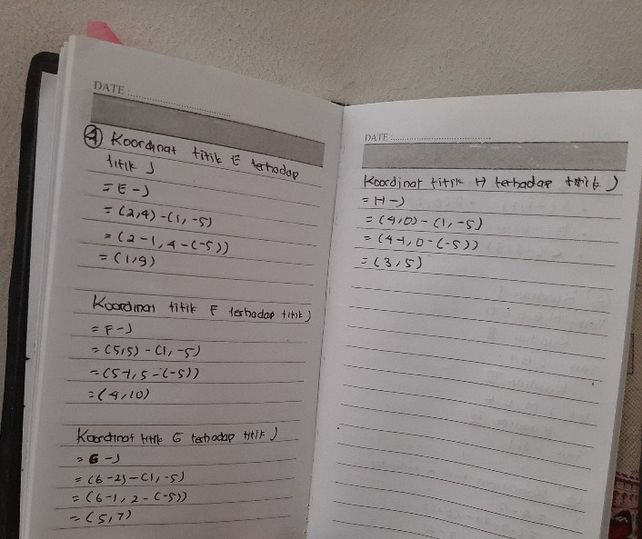 DATE :
④ Koordinat titik E terhadap
titik J
= E - J
= (2,4) - (1, -5)
= (2-1, 4-(-5))
= (1,9)
Koordinat titik F terhadap titik J
= F - J
= (5,5) - (1, -5)
= (5-1, 5-(-5))
= (4,10)
Koordinat titik G terhadap titik J
= G - J
= (6-2) - (1, -5)
= (6-1, 2-(-5))
= (5,7)
DATE :
Koordinat titik H terhadap titik J
= H - J
= (4,0) - (1, -5)
= (4-1, 0-(-5))
= (3,5)